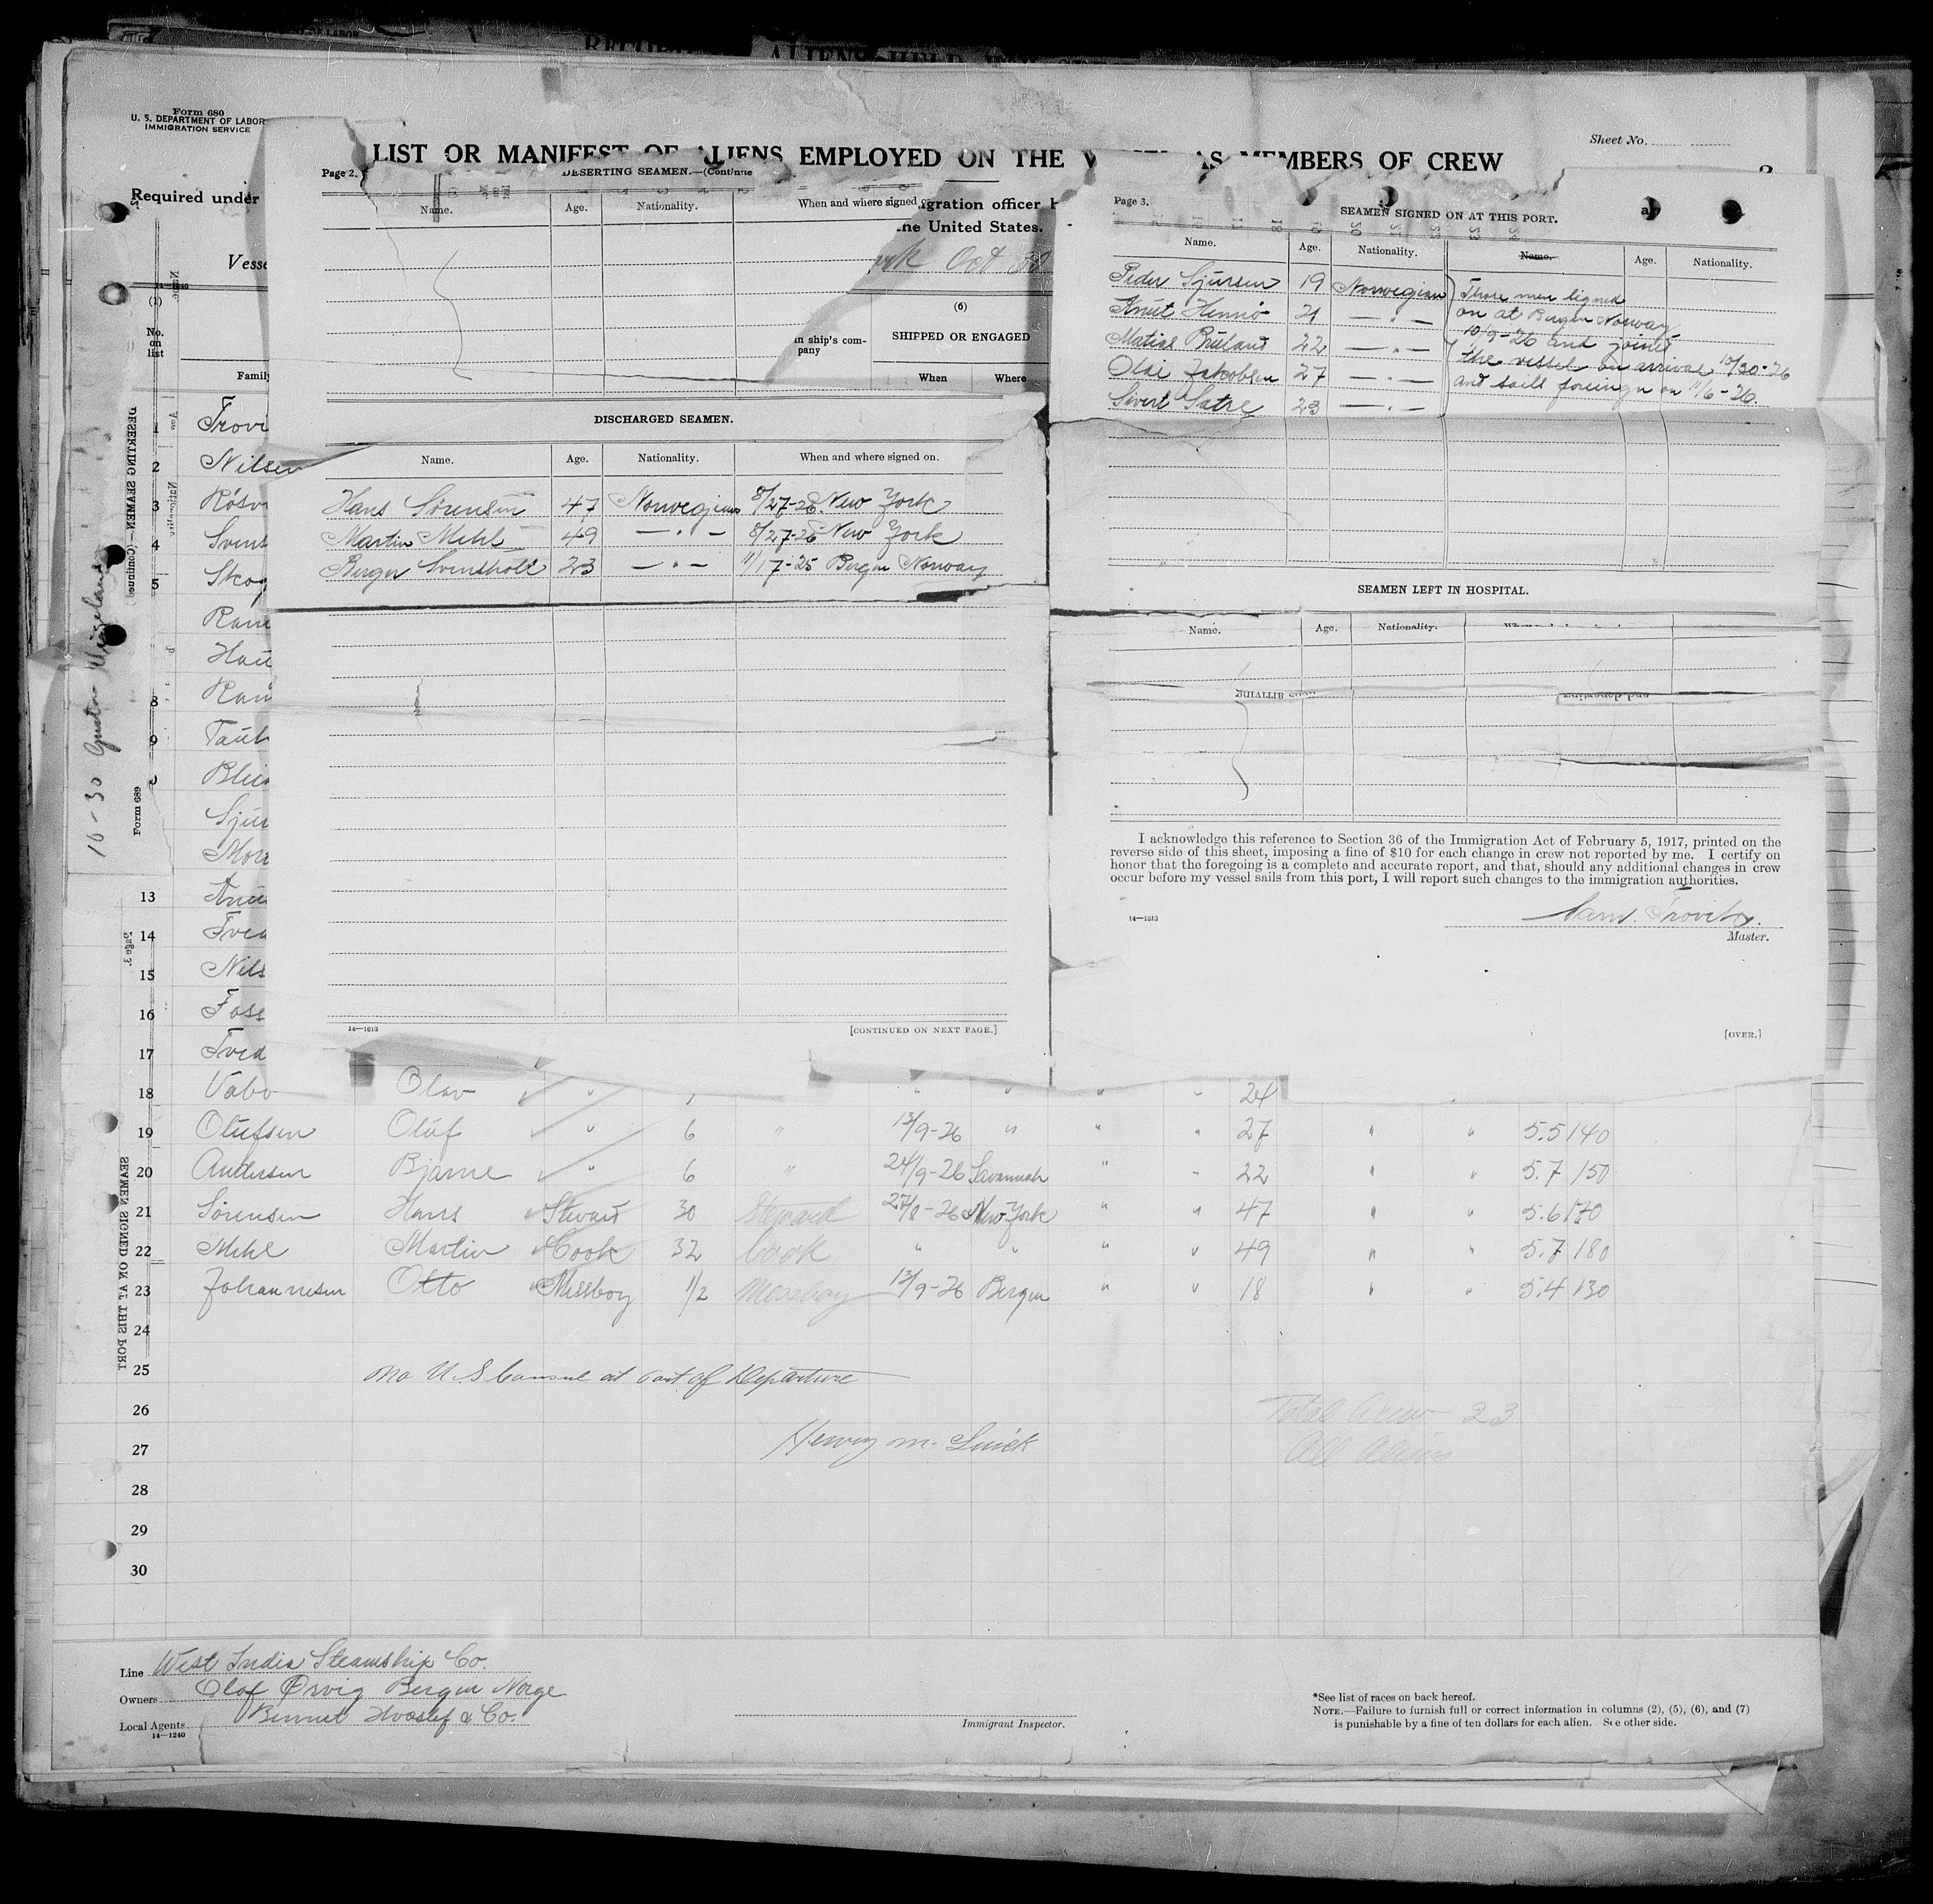 Form 680
U. S. DEPARTMENT OF LABOR
IMMIGRATION SERVICE
Sheet No.
LIST OR MANIFEST OF ALIENS EMPLOYED ON THE AS MEMBERS OF CREW
Required under
igration officer
the United States.
Oct 30
(1)
No.
on
list
Family
(6)
in ship's com-
pany
SHIPPED OR ENGAGED
When Where
Page 2.
DESERTING SEAMEN.—(Continue
Name. Age. Nationality. When and where signed
DISCHARGED SEAMEN.
Name. Age. Nationality. When and where signed on.
Hans Sörensen 47 Norwegian 8/27-26 New York
Martin Mehl 49 — " — 8/27-26 New York
Berger Svensholt 23 — " — 11/17-25 Bergen Norway
14—1613
[CONTINUED ON NEXT PAGE.]
Page 3.
SEAMEN SIGNED ON AT THIS PORT.
Name. Age. Nationality. Name. Age. Nationality.
Peder Sjursen 19 Norwegian
Knut 21 — " —
22 — " —
Jakobsen 27 — " —
Sivert Satre 23 — " —
These men signed
on at Bergen Norway
10/9-26 and joined
the vessel on arrival 10/30-26
and sails foreign on 11/6-26.
SEAMEN LEFT IN HOSPITAL.
Name. Age. Nationality.
I acknowledge this reference to Section 36 of the Immigration Act of February 5, 1917, printed on the
reverse side of this sheet, imposing a fine of $10 for each change in crew not reported by me. I certify on
honor that the foregoing is a complete and accurate report, and that, should any additional changes in crew
occur before my vessel sails from this port, I will report such changes to the immigration authorities.
14—1613
Master.
[OVER.]
10-30 Gunstein
DESERTING SEAMEN—(Continued)
Form 689
Page 3.
SEAMEN SIGNED ON AT THIS PORT
1 Trovi
2 Nilsen
3 Rösv
4 Svens
5 Skog
Rane
Hau
8 Ran
9 Taul
Sjur
13 Knu
14 Tved
15 Nils
16 Foss
17 Tved
18 Vabo Olav " " " " " 24
19 Olufsen Oluf " 6 " 13/9-26 " " " 27 " " 5.5 140
20 Andersen Bjarne " 6 " 24/9-26 Savannah " " 22 " " 5.7 150
21 Sörensen Hans Stewart 30 Steward 27/8-26 New York " " 47 " " 5.6 170
22 Mehl Martin Cook 32 Cook " " " " 49 " " 5.7 180
23 Johannesen Otto Messboy 1/2 Messboy 13/9-26 Bergen " " 18 " " 5.4 130
24
25
no U.S Consul at Port of Departure
26
Total Crew 23
27
All Aliens
28
29
30
Line West India Steamship Co.
Owners Olaf Örvig Bergen Norge
Local Agents Bennet Hvoslef & Co.
14—1240
Immigrant Inspector.
*See list of races on back hereof.
NOTE.—Failure to furnish full or correct information in columns (2), (5), (6), and (7)
is punishable by a fine of ten dollars for each alien. See other side.